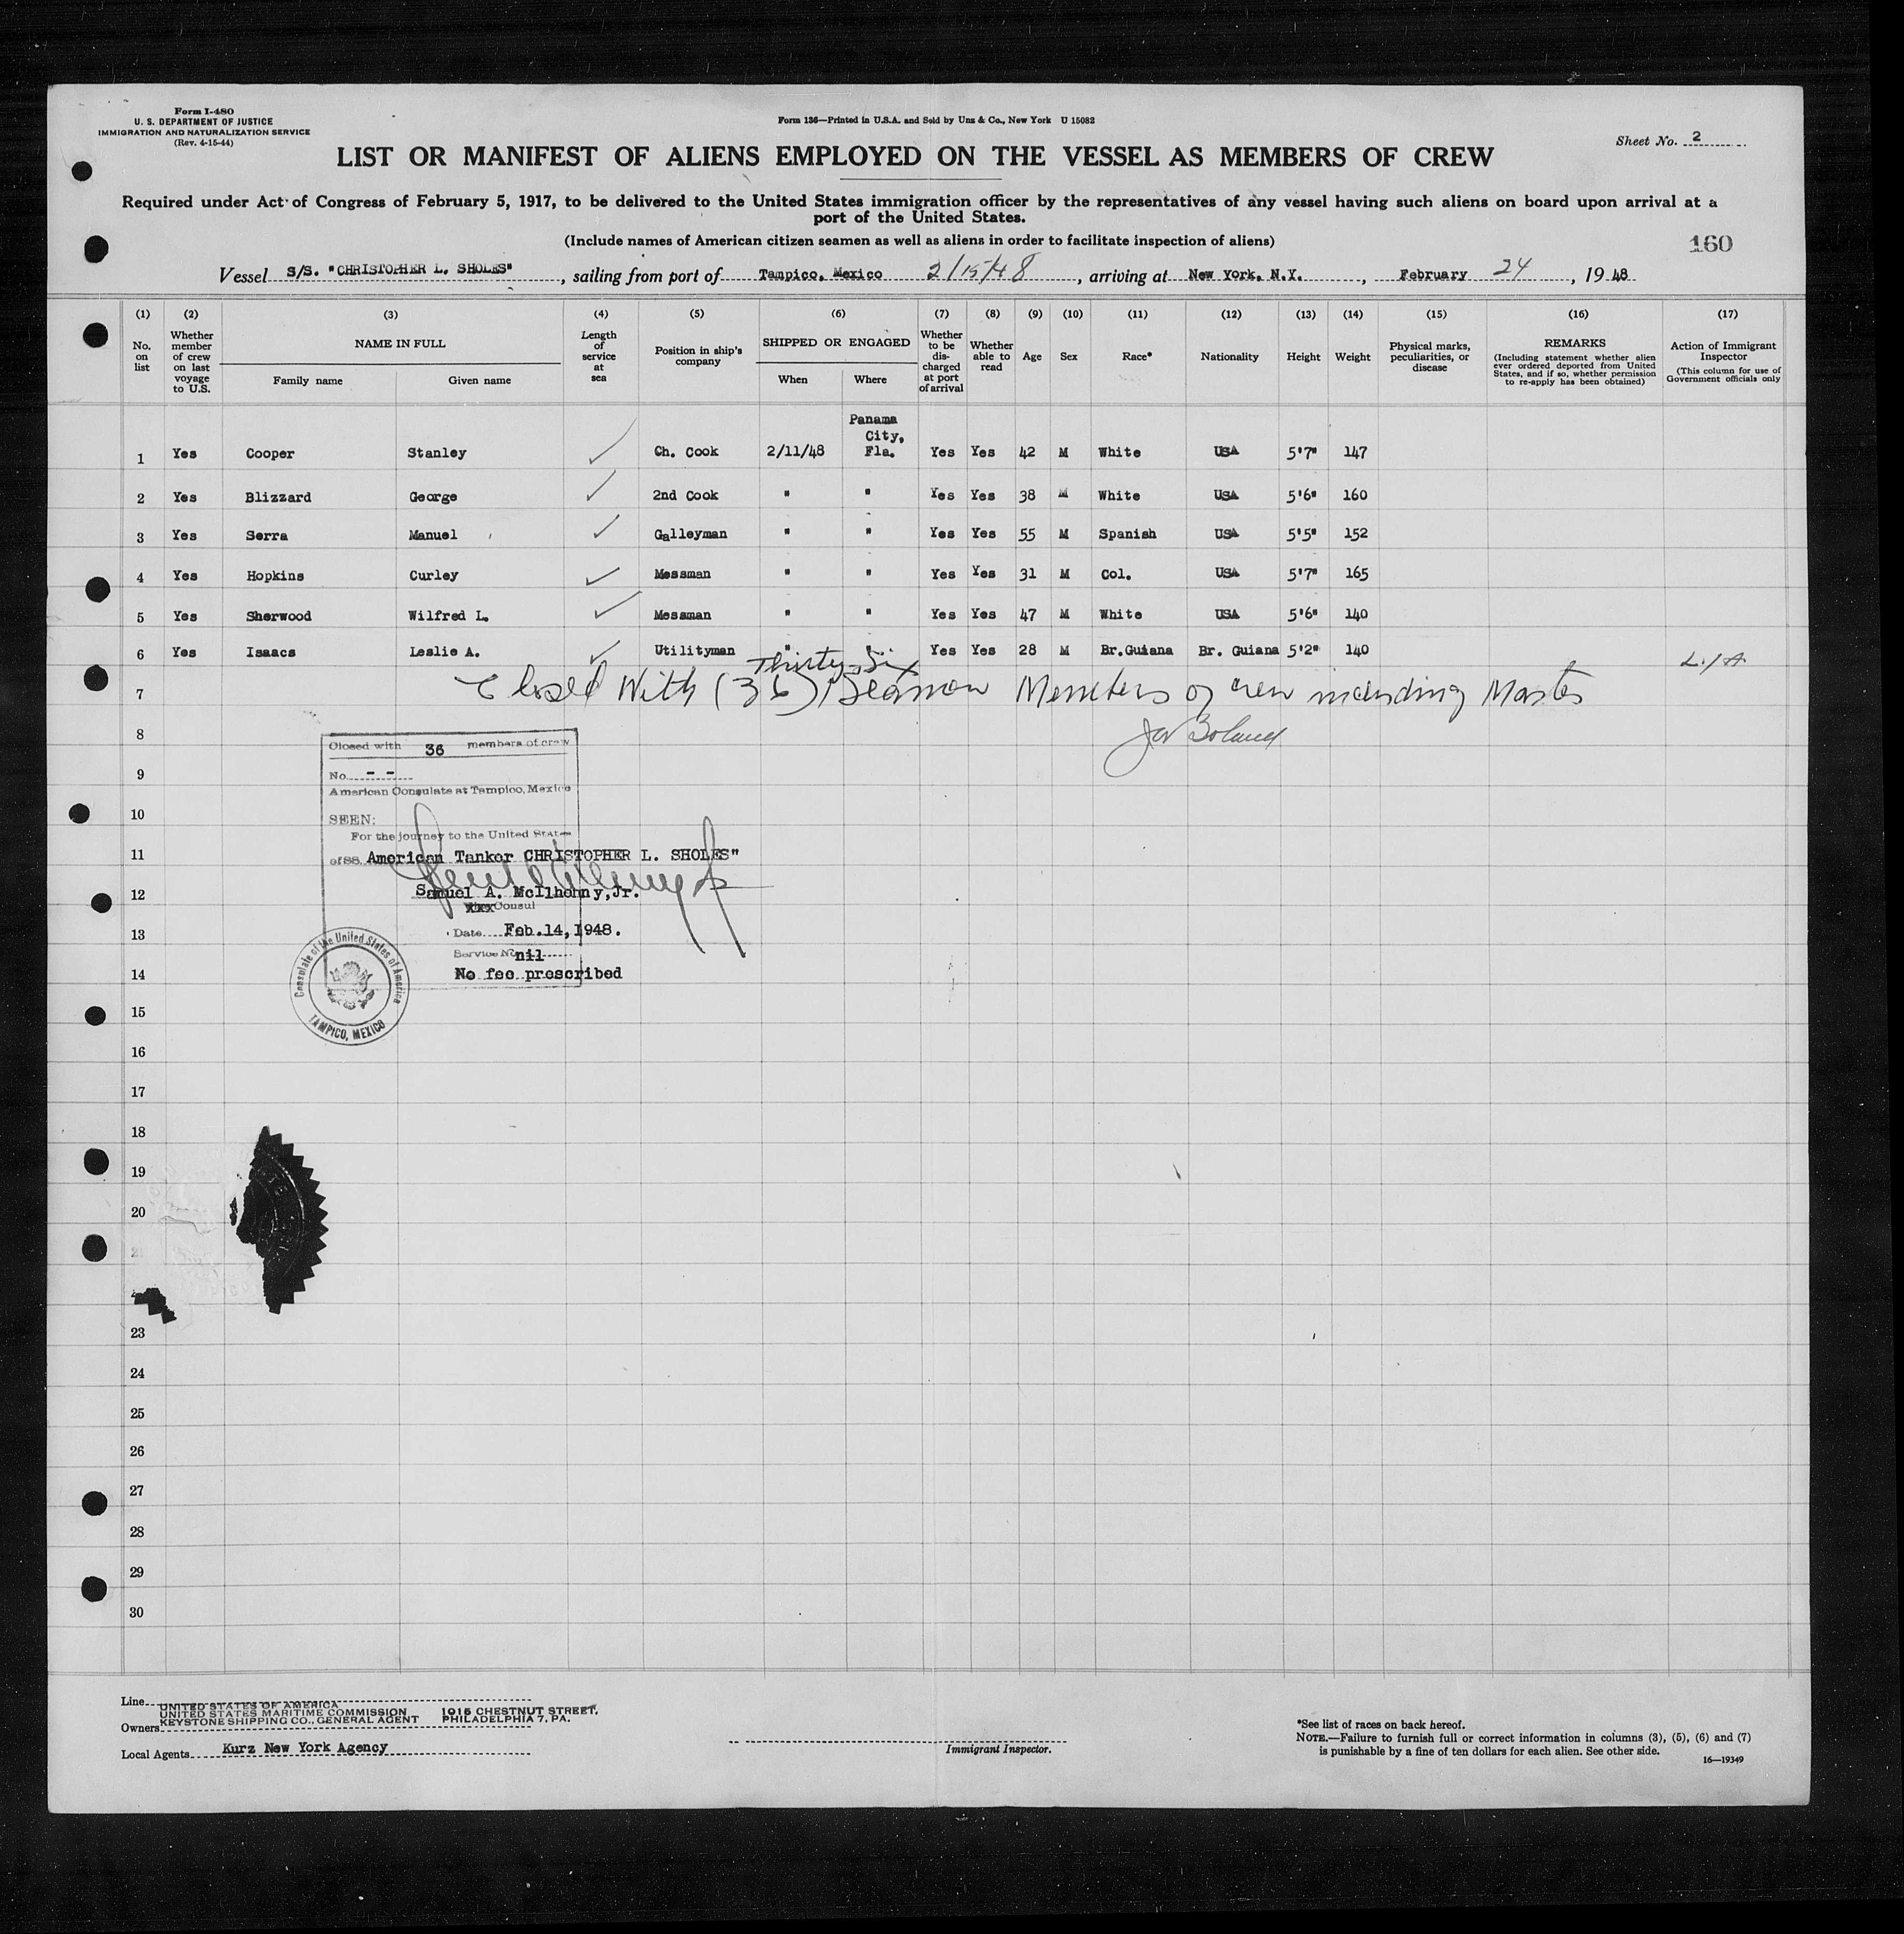 Form I-480
U. S. DEPARTMENT OF JUSTICE
IMMIGRATION AND NATURALIZATION SERVICE
(Rev. 4-15-44)
Form 136—Printed in U.S.A. and Sold by Unz & Co., New York U 15082
Sheet No. 2
LIST OR MANIFEST OF ALIENS EMPLOYED ON THE VESSEL AS MEMBERS OF CREW
Required under Act of Congress of February 5, 1917, to be delivered to the United States immigration officer by the representatives of any vessel having such aliens on board upon arrival at a
port of the United States.
(Include names of American citizen seamen as well as aliens in order to facilitate inspection of aliens)
160
Vessel S/S. "CHRISTOPHER L. SHOLES", sailing from port of Tampico, Mexico 2/15/48, arriving at New York, N.Y., February 24, 19 48
(1) (2) (3) (4) (5) (6) (7) (8) (9) (10) (11) (12) (13) (14) (15) (16) (17)
No. on list
Whether member of crew on last voyage to U.S.
NAME IN FULL
Family name
Given name
Length of service at sea
Position in ship's company
SHIPPED OR ENGAGED
When
Where
Whether to be discharged at port of arrival
Whether able to read
Age
Sex
Race*
Nationality
Height
Weight
Physical marks, peculiarities, or disease
REMARKS
(Including statement whether alien ever ordered deported from United States, and if so, whether permission to re-apply has been obtained)
Action of Immigrant Inspector
(This column for use of Government officials only
1 Yes Cooper Stanley Ch. Cook 2/11/48 Panama City, Fla. Yes Yes 42 M White USA 5'7" 147
2 Yes Blizzard George 2nd Cook " " Yes Yes 38 M White USA 5'6" 160
3 Yes Serra Manuel Galleyman " " Yes Yes 55 M Spanish USA 5'5" 152
4 Yes Hopkins Curley Messman " " Yes Yes 31 M Col. USA 5'7" 165
5 Yes Sherwood Wilfred L. Messman " " Yes Yes 47 M White USA 5'6" 140
6 Yes Isaacs Leslie A. Utilityman " " Yes Yes 28 M Br.Guiana Br. Guiana 5'2" 140
Thirty-Six
7 Closed With (36) Seamen Members of crew including Master
8
9
10
11
12
13
14
15
16
17
18
19
20
23
24
25
26
27
28
29
30
Closed with 36 members of crew
No. - -
American Consulate at Tampico, Mexico
SEEN:
For the journey to the United States
of SS. American Tanker CHRISTOPHER L. SHOLES"
Samuel A. McIlhenny, Jr.
xxx Consul
Date Feb. 14, 1948.
Service No. nil
No fee prescribed
Consulate of the United States of America
TAMPICO, MEXICO
Line UNITED STATES OF AMERICA
UNITED STATES MARITIME COMMISSION 1015 CHESTNUT STREET,
Owners KEYSTONE SHIPPING CO., GENERAL AGENT PHILADELPHIA 7, PA.
Local Agents Kurz New York Agency
Immigrant Inspector.
*See list of races on back hereof.
NOTE.—Failure to furnish full or correct information in columns (3), (5), (6) and (7)
is punishable by a fine of ten dollars for each alien. See other side.
16—19349